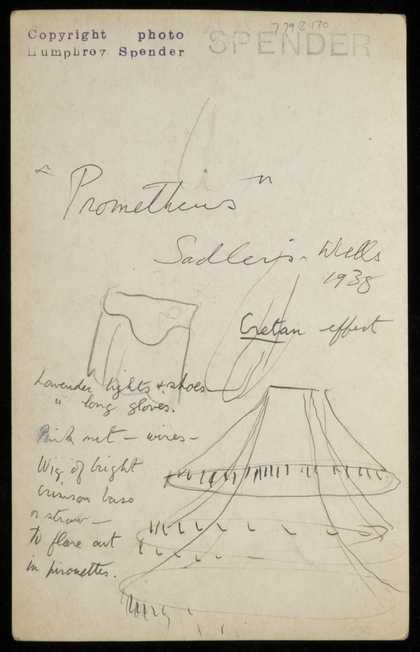 Copyright photo
Humphrey Spender
SPENDER
"Prometheus"
Sadler's-Wells
1938
Cretan effect
Lavender tights & shoes
" long gloves.
Pink net - wires -
Wig of bright
crimson
or straw -
To flare out
in pirouettes.